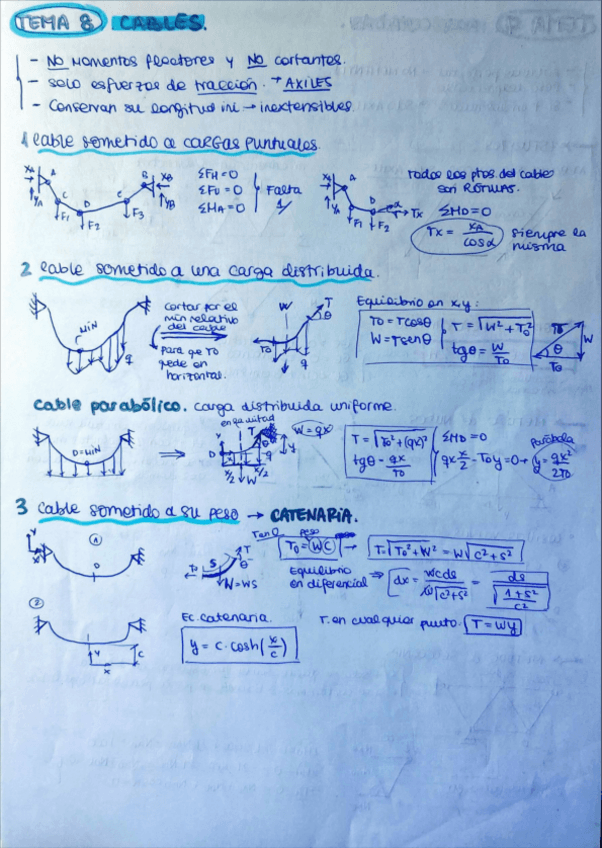 TEMA 8 CABLES.
- NO MOMENTOS flectores y NO cortantes.
- solo esfuerzos de tracción. → AXILES
- Conservan su longitud ini → inextensibles
1 Cable sometido a CARGAS PUNTUALES.
XA A B XB
YA C D E YB
F1 F2 F3
ΣFH=0
ΣFV=0
ΣMA=0
Falta 1
A
YA D α Tx
F1 F2
Todos los ptos del cable
son RÓTULAS.
ΣMD=0
Tx = XA / cosα siempre la
misma
2 Cable sometido a una carga distribuida.
MIN
q
Cortar por el
min relativo
del cable
para que T0
quede en
horizontal.
W T
θ
T0
q
Equilibrio en x,y:
T0 = Tcosθ
W = Tsenθ
T = √W²+T0²
tgθ = W/T0
T W
θ
T0
Cable parabólico. Carga distribuida uniforme.
D=MIN
en la mitad
T
D y
x/2 W x/2
W = qx
T = √T0²+(qx)²
tgθ = qx/T0
ΣMD=0
qx x/2 - T0y = 0 →
Parábola
y = qx²/2T0
3 Cable sometido a su peso → CATENARIA.
1
y
x
D
T
S θ
W = WS
peso
T0 = WC → T = √T0²+W² = W√C²+S²
Equilibrio
en diferencial ⇒ dx = WCds / W√C²+S² = ds / √1+S²/C²
2
y
x
C
Ec. catenaria.
y = c · cosh(x/c)
T. en cualquier punto. T = Wy